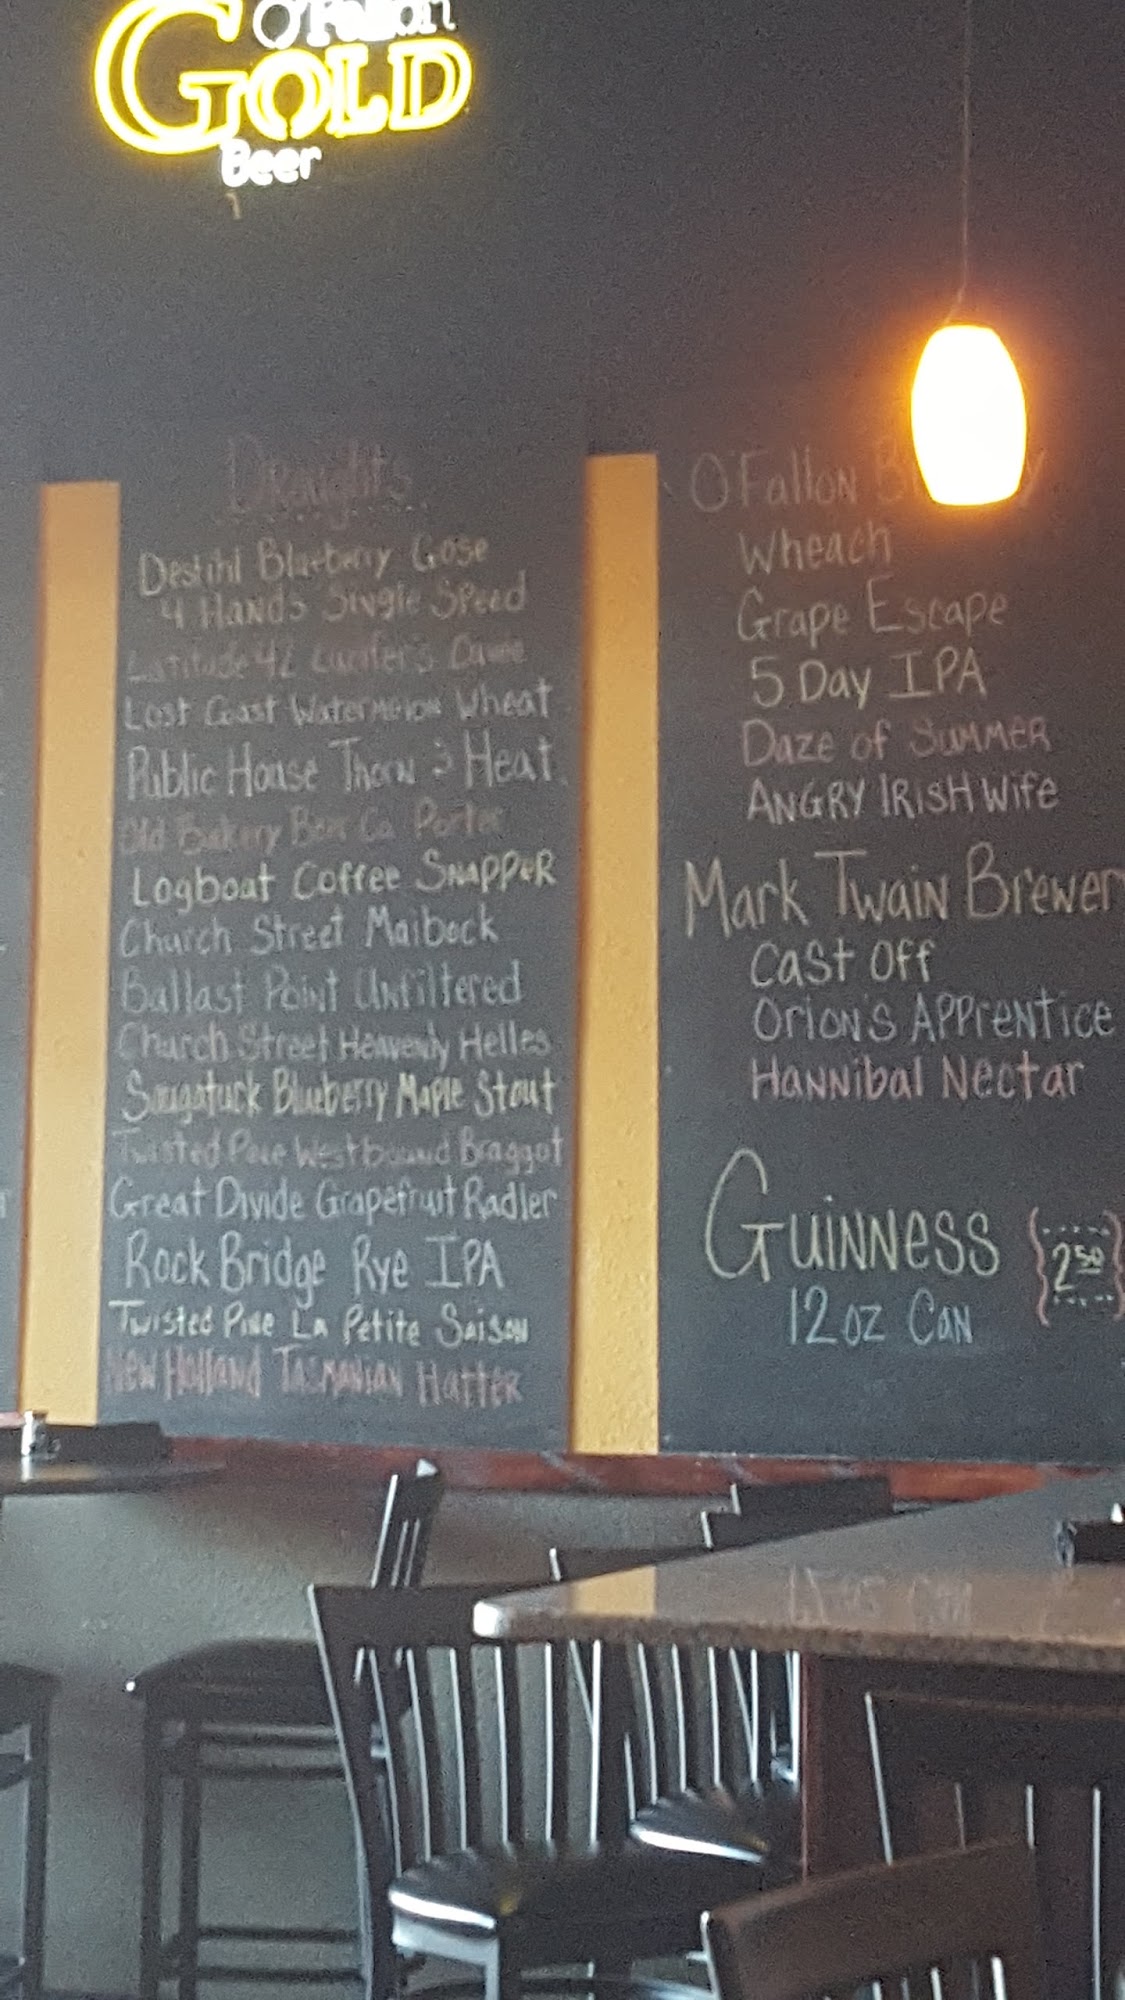 O'Fallon
GOLD
Beer
Draughts
Destihl Blueberry Gose
4 Hands Single Speed
Latitude 42 Lucifer's
Lost Coast Watermelon Wheat
Public House Thorn & Heat
Old Bakery Beer Co Porter
Logboat Coffee Snapper
Church Street Maibock
Ballast Point Unfiltered
Church Street Heavenly Helles
Saugatuck Blueberry Maple Stout
Twisted Pine Westbound Braggot
Great Divide Grapefruit Radler
Rock Bridge Rye IPA
Twisted Pine La Petite Saison
New Holland Tasmanian Hatter
O'Fallon
Wheach
Grape Escape
5 Day IPA
Daze of Summer
ANGRY IRISH Wife
Mark Twain Brewer
Cast Off
Orion's Apprentice
Hannibal Nectar
Guinness 2.50
12 oz Can